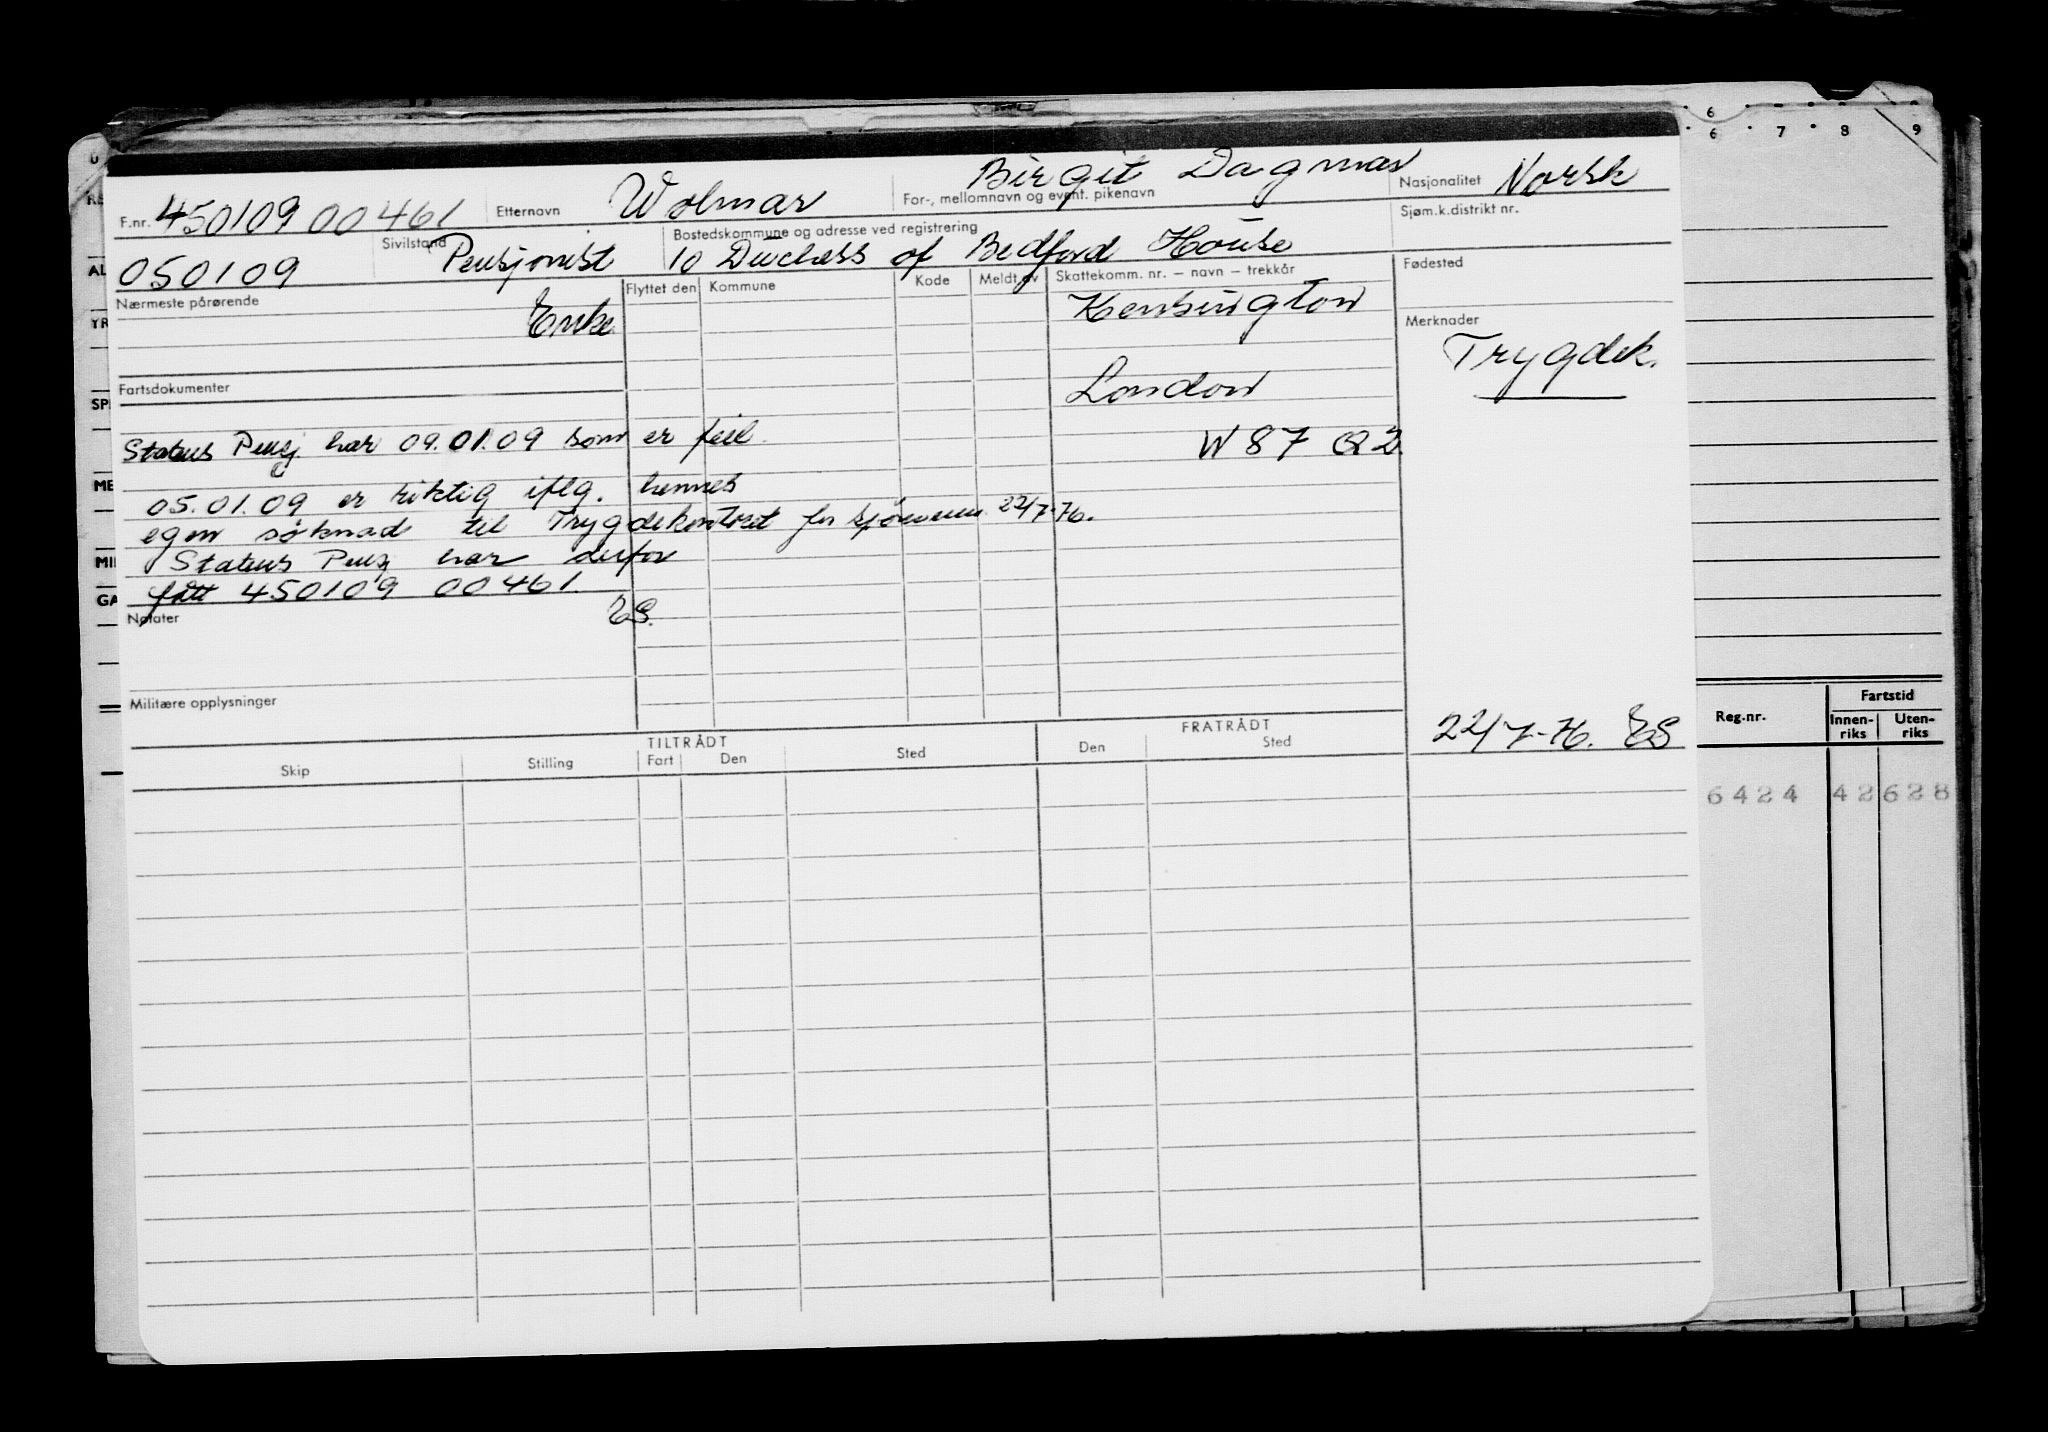 6
6 7 8 9
F.nr. 450109 00461 Etternavn Wolmar Birgit Dagmar
For-, mellomnavn og event. pikenavn
Nasjonalitet Norsk
050109 Sivilstand Pensjonist
Bostedskommune og adresse ved registrering
10 Duchess of Bedford House
Sjøm.k.distrikt nr.
Nærmeste pårørende Enke
Flyttet den Kommune Kode Meldt av Skattekomm. nr. – navn – trekkår
Kensington
London
W 87 Q2.
Fødested
Merknader
Trygdek.
Fartsdokumenter
Status Pensj. har 09.01.09 som er feil.
05.01.09 er riktig iflg. hennes
egen søknad til Trygdekontoret for sjømenn 22/7-76.
Status Pensj har derfor
fått 450109 00461.
ES.
Notater
Militære opplysninger
22/7-76. ES
TILTRÅDT FRATRÅDT
Skip Stilling Fart Den Sted Den Sted
Reg.nr. Fartstid
Innen-riks Uten-riks
6424 42 628